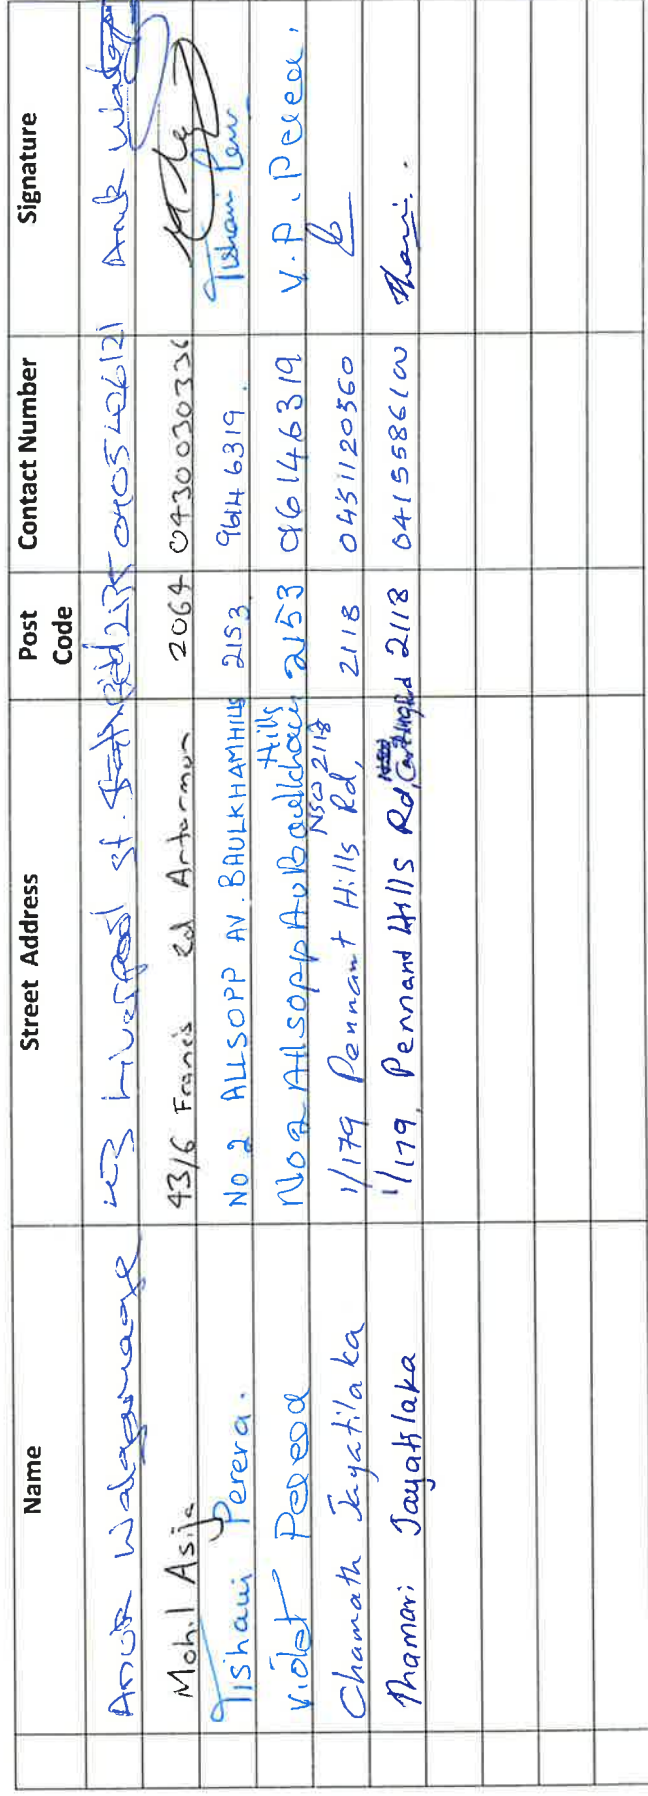 Name Street Address Post Code Contact Number Signature
Anuk Walagamage 43 Liverpool st. Strathfield 2135 0405426121 Anuk
Mohil Asija 43/6 Francis Rd Artarmon 2064 0430030336
Tishani Perera. No 2 ALLSOPP AV. BAULKHAMHILLS 2153 96146319. Tishani
Violet Perera No 2 Allsopp Av Baulkham Hills 2153 96146319 V.P. Perera.
Chamath Jayatilaka 1/179 Pennant Hills Rd, NSW 2118 2118 0451120560
Thamari Jayatilaka 1/179, Pennand Hills Rd, Carlingford 2118 0415586100